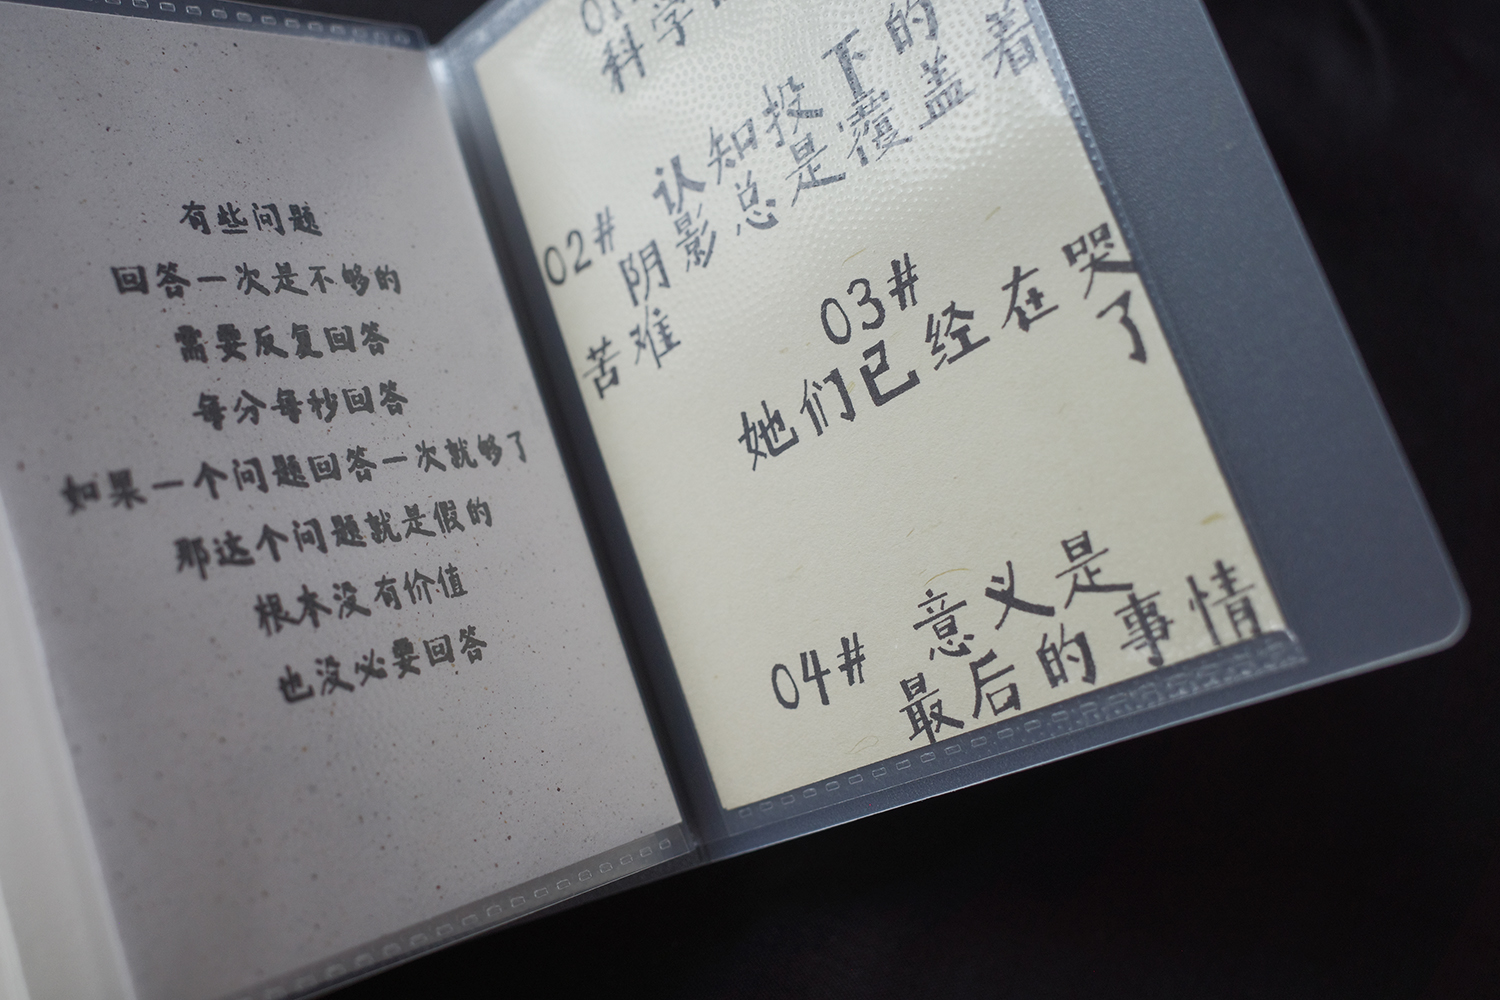 有些问题
回答一次是不够的
需要反复回答
每分每秒回答
如果一个问题回答一次就够了
那这个问题就是假的
根本没有价值
也没必要回答
科学
02# 认知投下的
阴影总是覆盖着
苦难
03#
她们已经在哭
了
04# 意义是
最后的事情